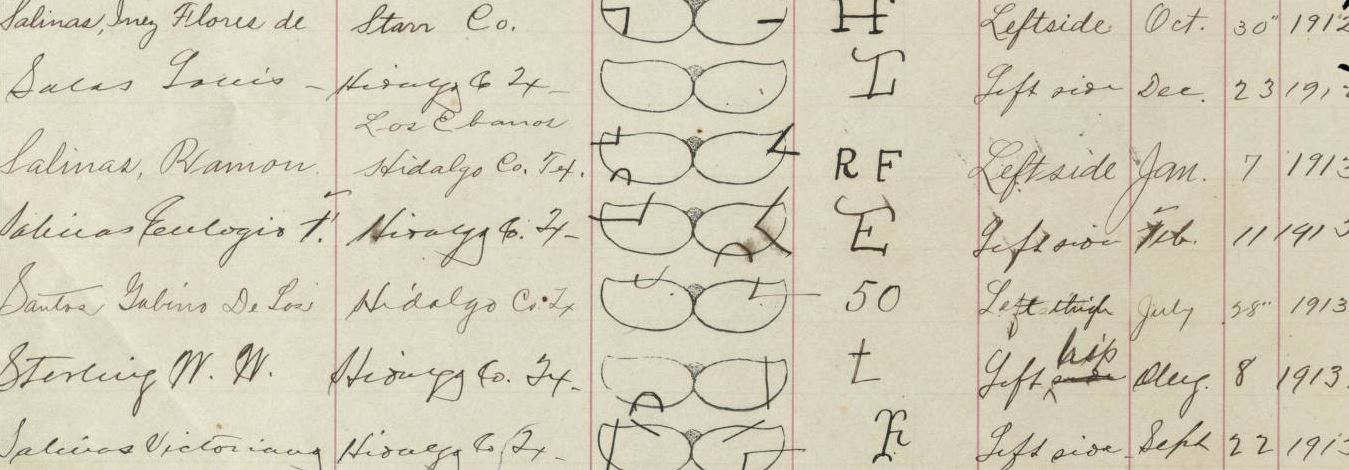 Salinas, Inez Flores de Starr Co. H Leftside Oct. 30" 1912
Salas Louis - Hidalgo Co Tx - L Left side Dec. 23 191
Los Ebanos
Salinas, Ramon. Hidalgo Co. Tex. R F Leftside Jan. 7 1913
Salinas Eulogio T. Hidalgo Co. Tx - E Left side Feb. 11 1913
Santos Gabino De Los Hidalgo Co. Tx 50 Left thigh July 28" 1913
hip
Sterling W. W. Hidalgo Co. Tx - L Left side Aug. 8 1913.
Salinas Victoriano Hidalgo Co Tx - Left side Sept 22 191